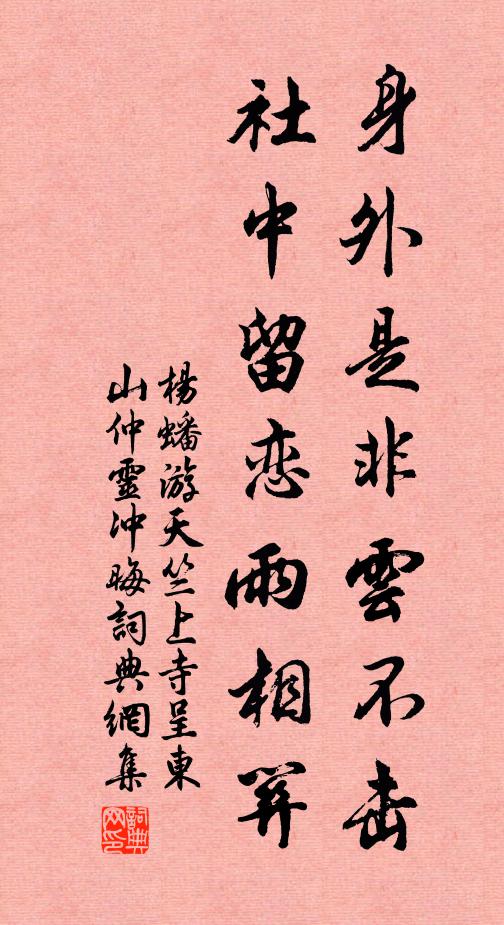 身外是非雲不
社中留恋雨相
楊蟠游天竺上寺呈東
山仲靈冲晦詞典網集
詞典
网印